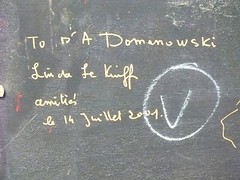 To P'A Domanowski
Linda Le Kinff
amitiés
le 14 Juillet 2001.
V